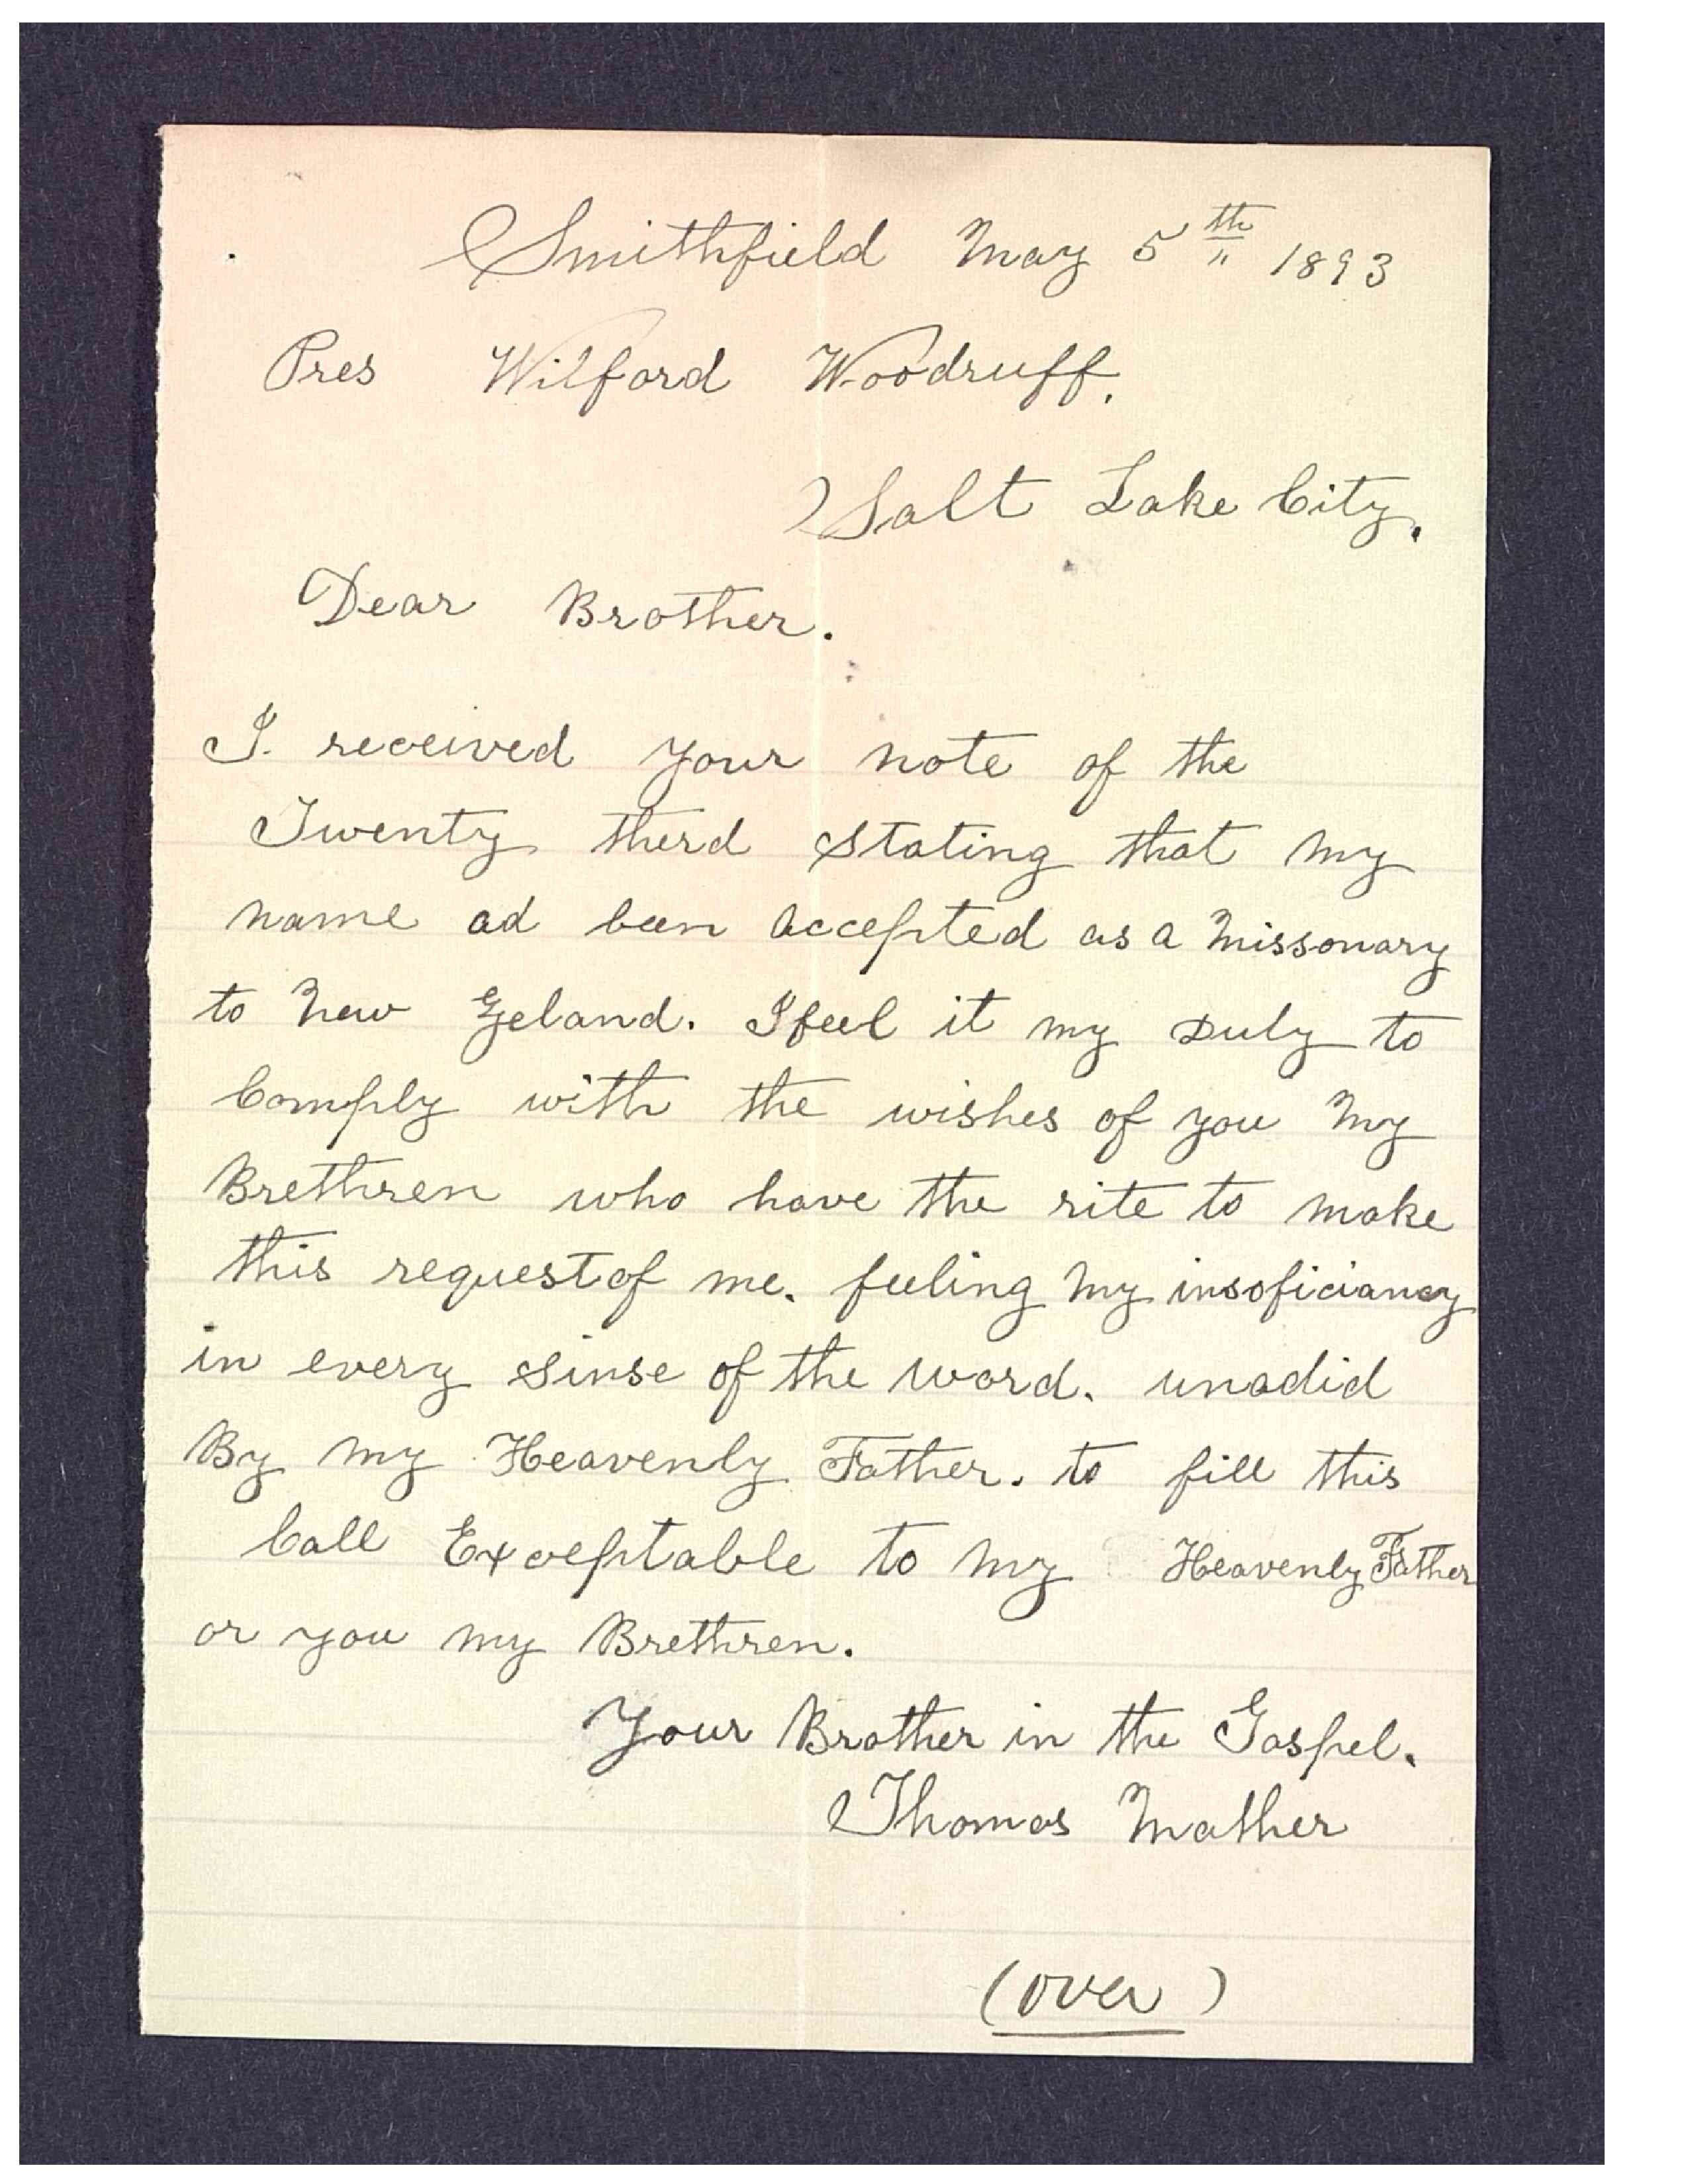 Smithfield May 5th 1893
Pres Wilford Woodruff.
Salt Lake City.
Dear Brother.
I. received your note of the
Twenty therd stating that my
name ad been accepted as a missonary
to New Zeland. I feel it my Duly to
Comply with the wishes of you my
Brethren who have the rite to make
this request of me. feeling my insoficiancy
in every sinse of the word. unadid
By my Heavenly Father. to fill this
Call Exceptable to my Heavenly Father
or you my Brethren.
Your Brother in the Gospel.
Thomas Mather
(over)